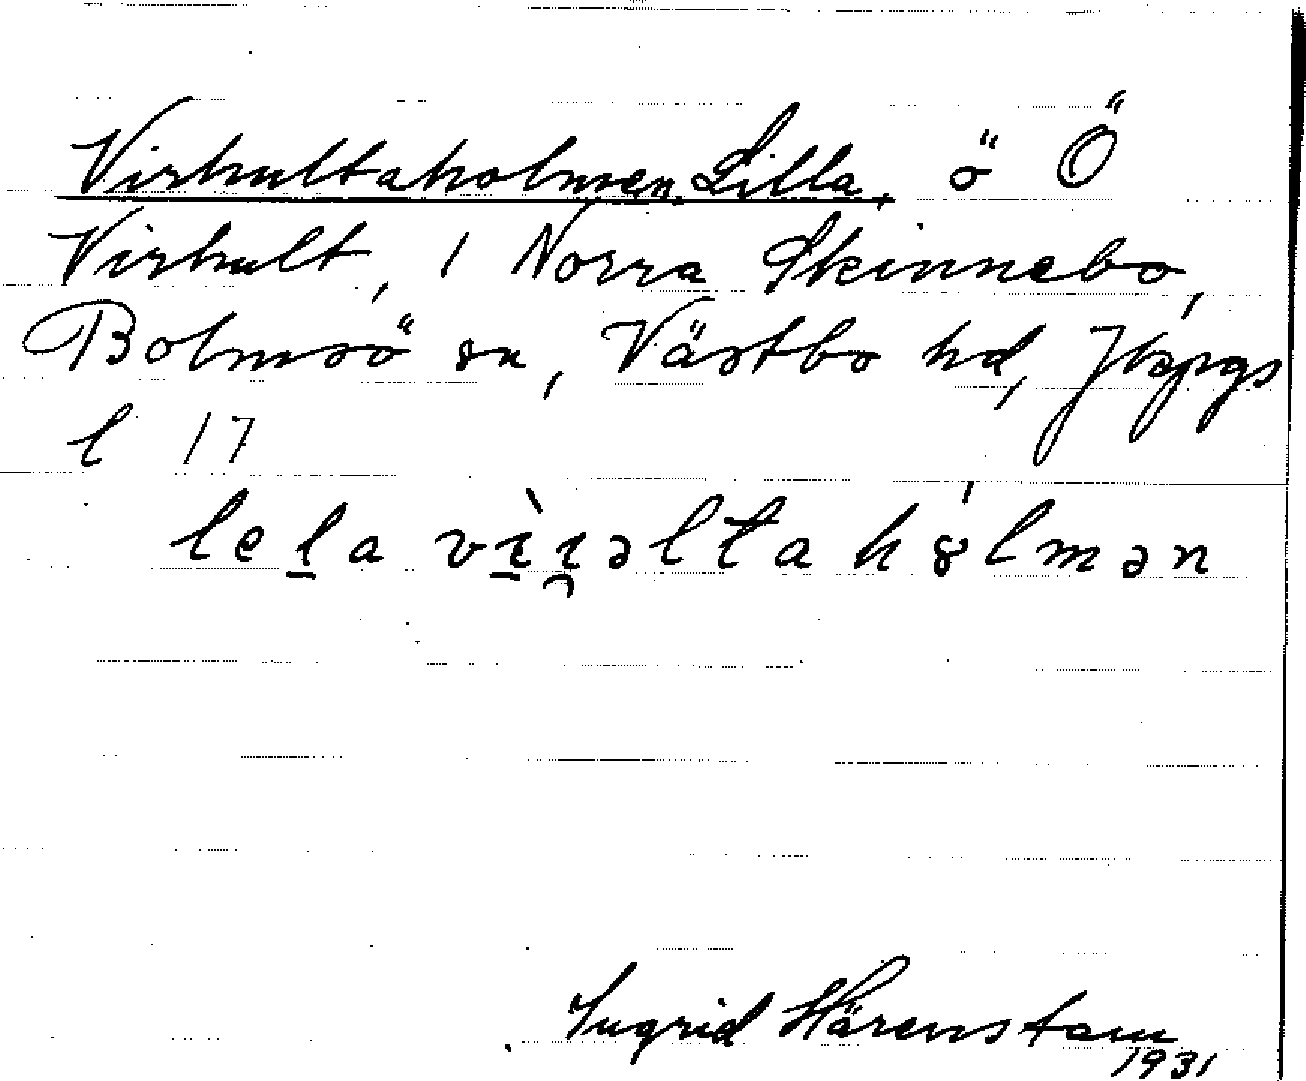 Virhultaholmen, Lilla, ö Ö
Virhult, 1 Norra Skinnebo,
Bolmsö sn, Västbo hd, Jkpgs
l 17
lela vìıəlta hólmən
Ingrid Härenstam
1931